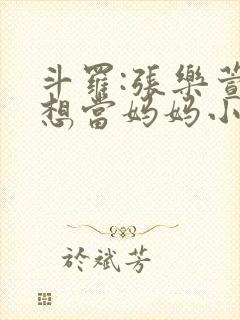 斗羅:張樂萱
想當妈妈小
於斌芳